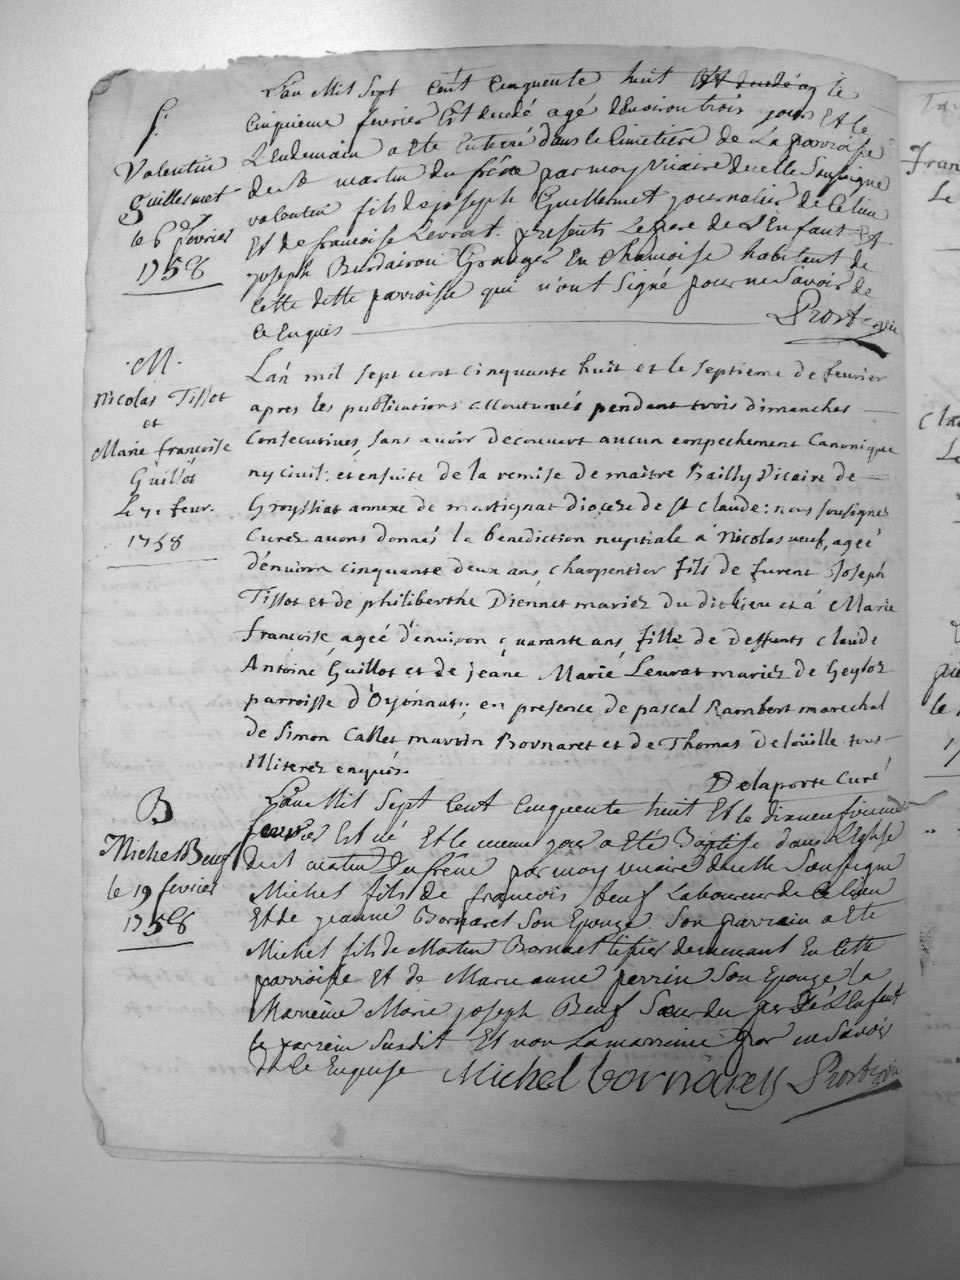 S.
Valentin
Guillermet
le 6e fevrier
1758
L'an Mil Sept Cent Cinquente huit Est decédé le
Cinquieme fevrier Est decedé agé denviron trois jours Et le
Lendemain a eté Enterré dans le Cimetiere de La parroisse
de St martin du frêne par moy Vicaire dicelle Soussigne
valentin fils de joseph Guillermet journalier de Ce lieu
Et de francoise Levrat. presents Le pere de L'Enfant Et
joseph Granger En Chamoise habitent de
Cette ditte parroisse qui n'ont Signé pour ne Savoir de
Ce Enquis
Prost vic
M.
Nicolas Tissot
et
Marie francoise
Guillot
Le 7e feur.
1758
L'an mil sept cent cinquante huit et le septieme de fevrier
apres les publications accoutumés pendant trois dimanches
Consecutives, sans avoir découvert aucun empechement Canonique
ny civil: et ensuite de la remise de maitre Bailly Vicaire de
Groyssiat annexe de martignat diocese de st claude: nous soussignés
Curez avons donnés la benediction nuptiale à Nicolas veuf, ageé
d'environ cinquante deux ans, charpentier fils de furent Joseph
Tissot et de philiberthe Diennet mariez du dit lieu et á Marie
francoise ageé d'environ quarante ans, fille de deffunts claude
Antoine Guillot et de jeane Marie Levrat mariez de Geyloz
parroisse d'Oyonnat; en presence de pascal Rambert marechal
de Simon Callet martin Bornaret et de Thomas Delouille tous
Illiterez enquis.
Delaporte Curé
B
Michel Beuf
le 19 fevrier
1758
L'an Mil Sept Cent Cinquente huit Et le dixneufvieme
fevrier Est né Et le meme jour a eté Baptisé dans L'Eglise
de st martin du frêne par moy vicaire dicelle Soussigne
Michel fils de francois Beuf Laboureur de Ce lieu
Et de jeanne Bornaret Son Epouze Son parrain a ete
Michel fils de Martin Bornaret demeurant En Cette
parroisse Et de Marie anne perrin Son Epouze la
Marreine Marie joseph Beuf Sœur du pere de L'Enfant
le parrein Susdit Et non La marreine por ne Savoir
de Ce Enquise Michel bornarett Prost vic